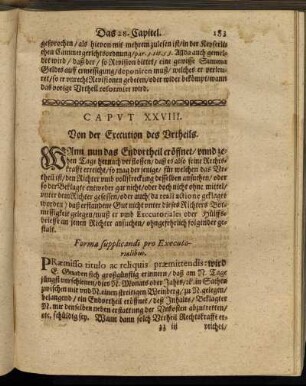 Das 28. Capitel. 183
gesprochen / als hievon mit mehrem zulesen ist / in der Keyserlichen
Cammergerichtsordnung
wird / daß der / so Revision bittet / eine gewisse Summa
Geldes auff ermessigung / deponiren muß / welches er verleuret
/ so er
das vorige Urtheil reformiret wird.
CAPVT XXVIII.
Von der Execution des Vrtheils.
WAnn nun das Endvrtheil eröffnet / vnnd zehen
Tage hernach verflossen / daß es also seine Rechtskrafft
erreicht / so mag der jenige / für welchen das Vrtheil
ist / den Richter vmb vollstreckung desselben ansuchen / ober
so der Beklagte entweder gar nicht / oder doch nicht ohne mittel /
vnter dem Richter gesessen / oder auch da reali actione
worden / daß erstandene Gut nicht vnter dieses Richters Bottmässigkeit
gelegen / muß er vmb Executoriales oder Hülffsbrieffe
an jenen Richter ansuchen / ohngefehrlich folgender gestalt.
Forma supplicandi pro Executorialibus.
PRæmisso titulo ac reliquis præmittendis: wird
E. Gnaden sich großgünstig erinnern / daß am N. Tage
jüngst verschienen / dieses N. Monats oder Jahrs / in Sachen
zwischen mir vnd N. einen streitigen Weinberg / zu N. gelegen /
belangend / ein Endvrtheil eröffnet / daß Inhalts / Beklagter
N. mir denselben neben erstattung der Vnkosten abzutretten /
etc. schuldig sey. Wann dann solch Vrtheil Rechtskrafft erreichet /